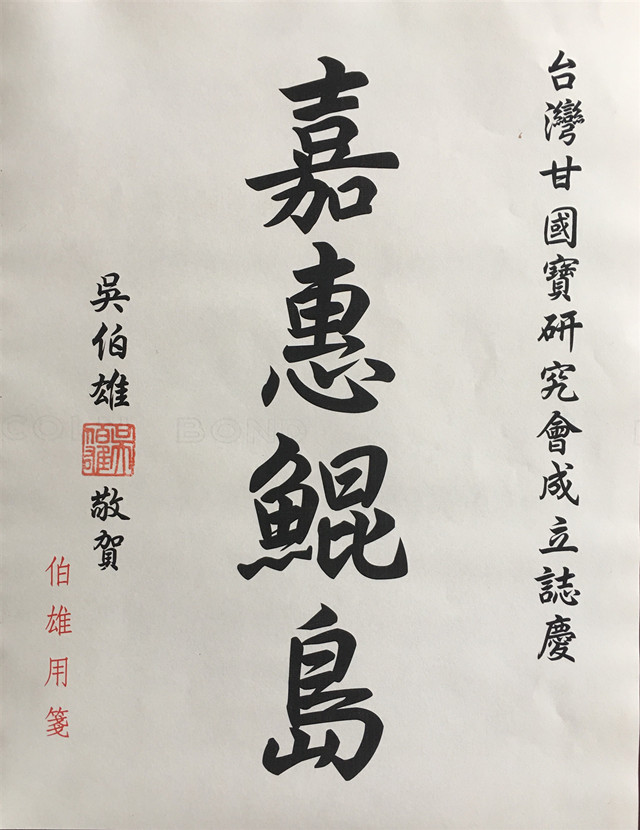 台灣甘國寶研究會成立誌慶
嘉惠鯤島
吳伯雄
敬賀
伯雄用箋